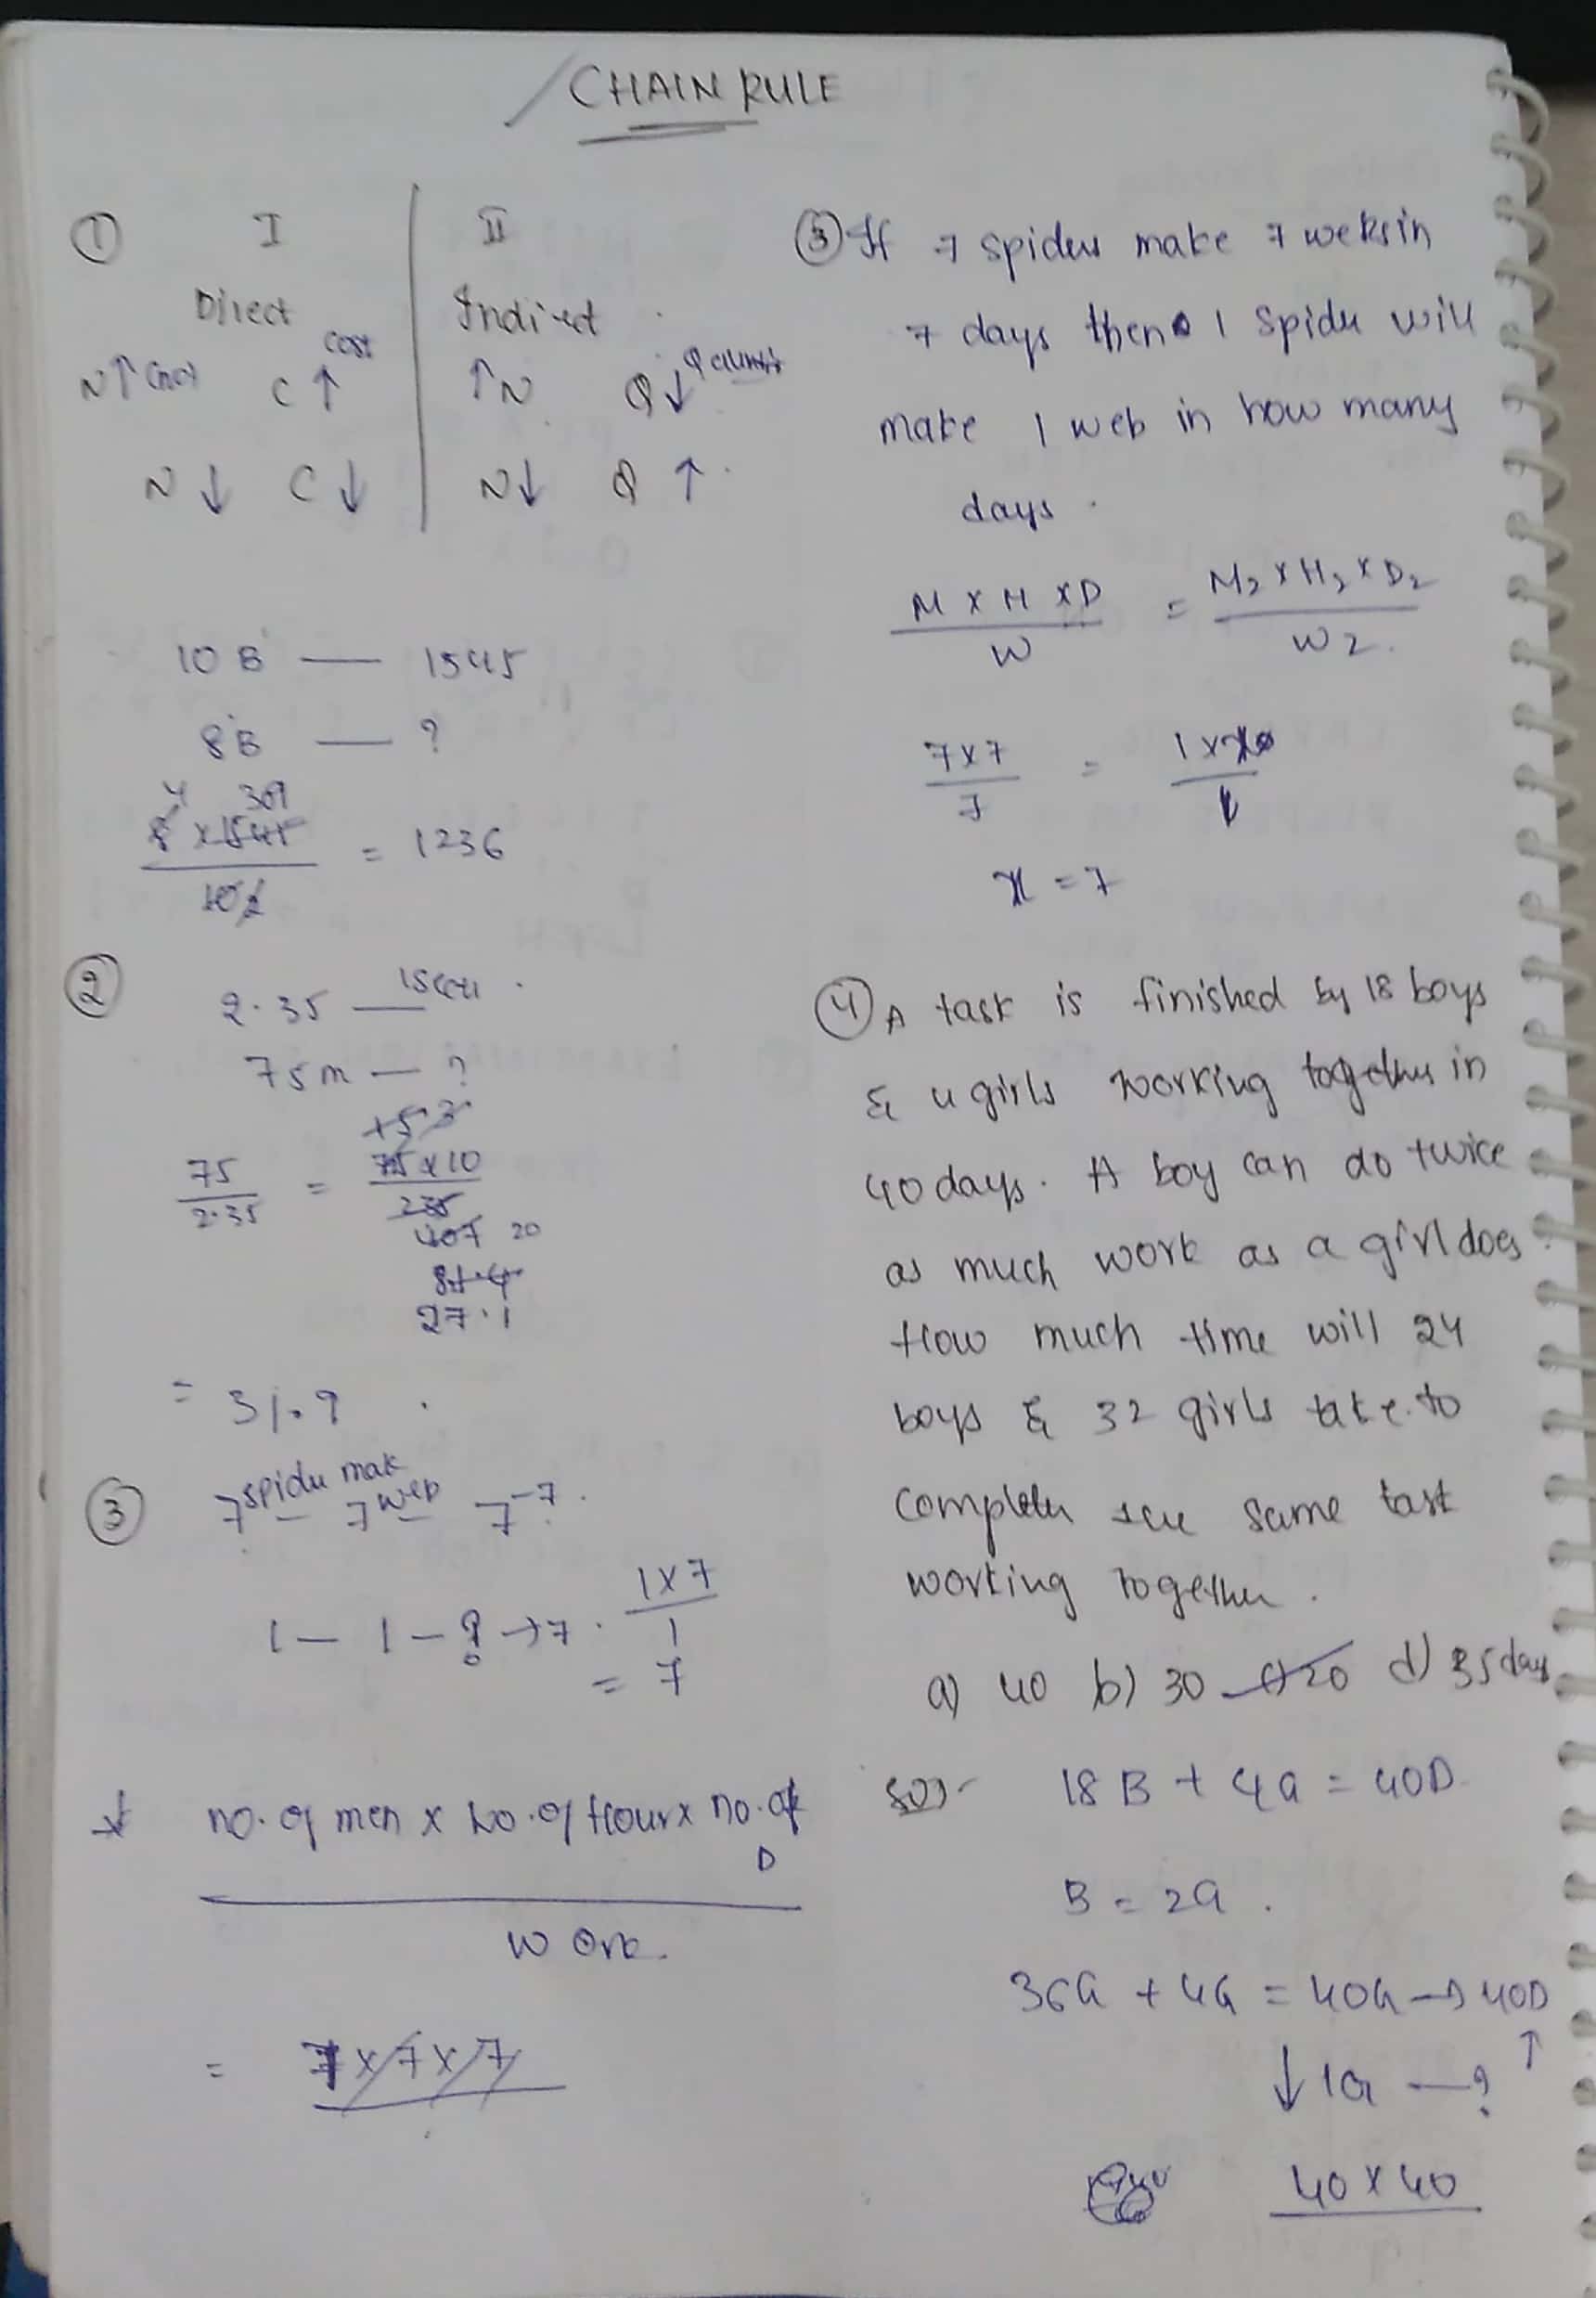 CHAIN RULE
① I II
Direct Indirect
N↑ (no) C↑ cost ↑N Q↓
N↓ C↓ N↓ Q↑
10 B — 1545
8B — ?
4 309
8 x 1545
= 1236
10 2
② 2.35 —
75m — ?
75 = 75 x 10
2.35 235
407 20
81.4
27.1
= 31.9
③ 7 spider mak 7 web 7 -7
1 — 1 — ? → 7 . 1x7
1
= 7
* no. of men x no. of Hour x no. of
D
Work
= 7 x 7 x 7
③ If 7 spiders make 7 webs in
7 days then 1 spider will
make 1 web in how many
days.
M x H x D = M2 x H2 x D2
W W2.
7x7 = 1 x x
7 1
x = 7
④ A task is finished by 18 boys
& 4 girls working together in
40 days. A boy can do twice
as much work as a girl does
How much time will 24
boys & 32 girls take to
complete the same task
working together.
a) 40 b) 30 c) 20 d) 35 days
Sol- 18 B + 4G = 40D
B = 2G.
36G + 4G = 40G → 40D
↓ 1G —? ↑
40 x 40